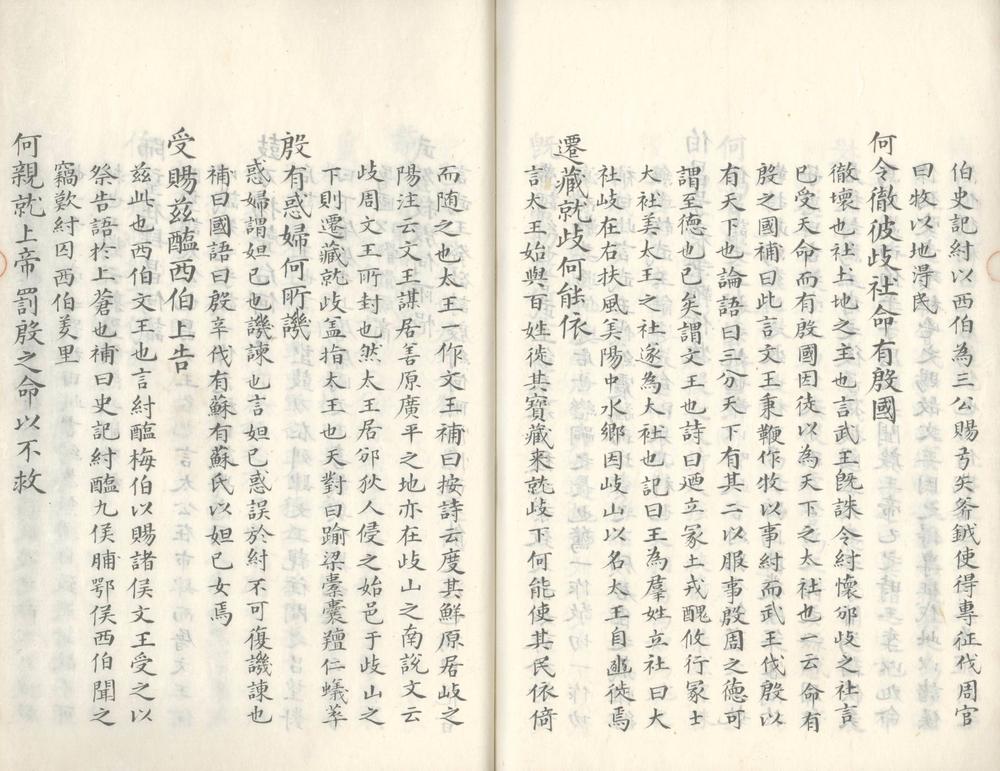 伯史記紂以西伯為三公賜弓矢斧鉞使得專征伐周官
曰牧以地得民
何令徹彼歧社命有殷國
徹壞也社土地之主也言武王既誅令紂懷邠歧之社言
已受天命而有殷國因徙以為天下之太社也一云命有
殷之國補曰此言文王秉鞭作牧以事紂而武王伐殷以
有天下也論語曰三分天下有其二以服事殷周之德可
謂至德也已矣謂文王也詩曰廼立冢土戎醜攸行冢士
大社美太王之社遂為大社也記曰王為羣姓立社曰大
社歧在右扶風美陽中水鄉因歧山以名太王自豳徙焉
遷藏就歧何能依
言太王始與百姓徙其寶藏来就歧下何能使其民依倚
而随之也太王一作文王補曰按詩云度其鮮原居歧之
陽注云文王謀居善原廣平之地亦在歧山之南說文云
歧周文王所封也然太王居邠狄人侵之始邑于歧山之
下則遷藏就歧盖指太王也天對曰踰梁橐囊羶仁蟻萃
殷有惑婦何所譏
惑婦謂妲已也譏諫也言妲已惑誤於紂不可復譏諫也
補曰國語曰殷辛伐有蘇有蘇氏以妲已女焉
受賜兹醢西伯上告
兹此也西伯文王也言紂醢梅伯以賜諸侯文王受之以
祭告語於上蒼也補曰史記紂醢九侯脯鄂侯西伯聞之
竊歎紂囚西伯羑里
何親就上帝罰殷之命以不救